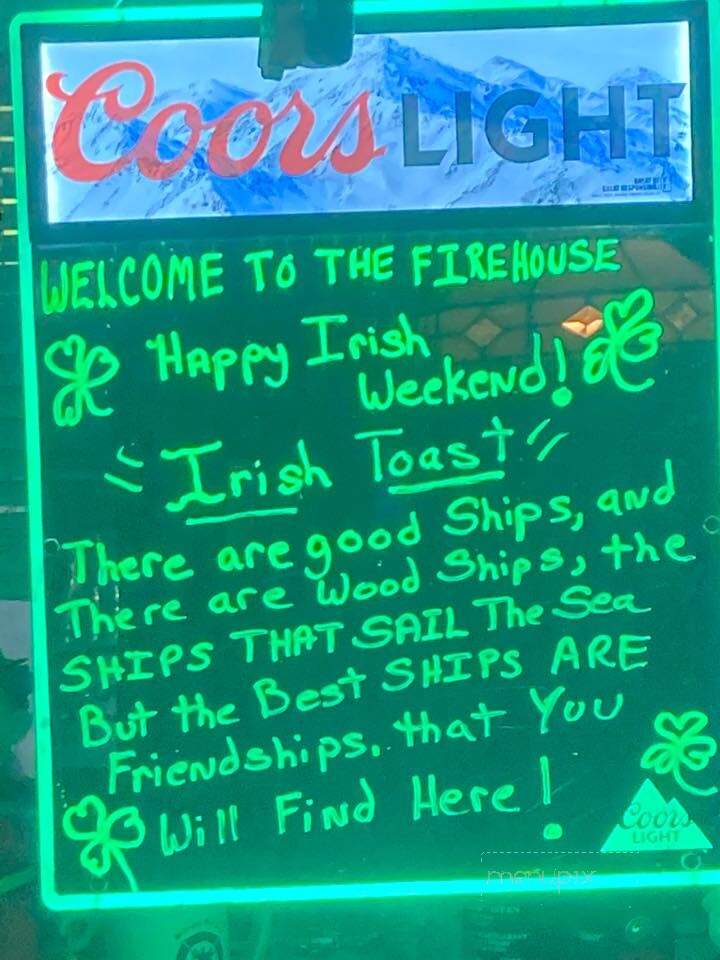 Coors LIGHT
GREAT BEER
GREAT RESPONSIBILITY
WELCOME TO THE FIREHOUSE
Happy Irish
Weekend!
"Irish Toast"
There are good Ships, and
There are Wood Ships, the
SHIPS THAT SAIL The Sea
But the Best SHIPS ARE
Friendships, that You
Will Find Here!
Coors
LIGHT
menupix